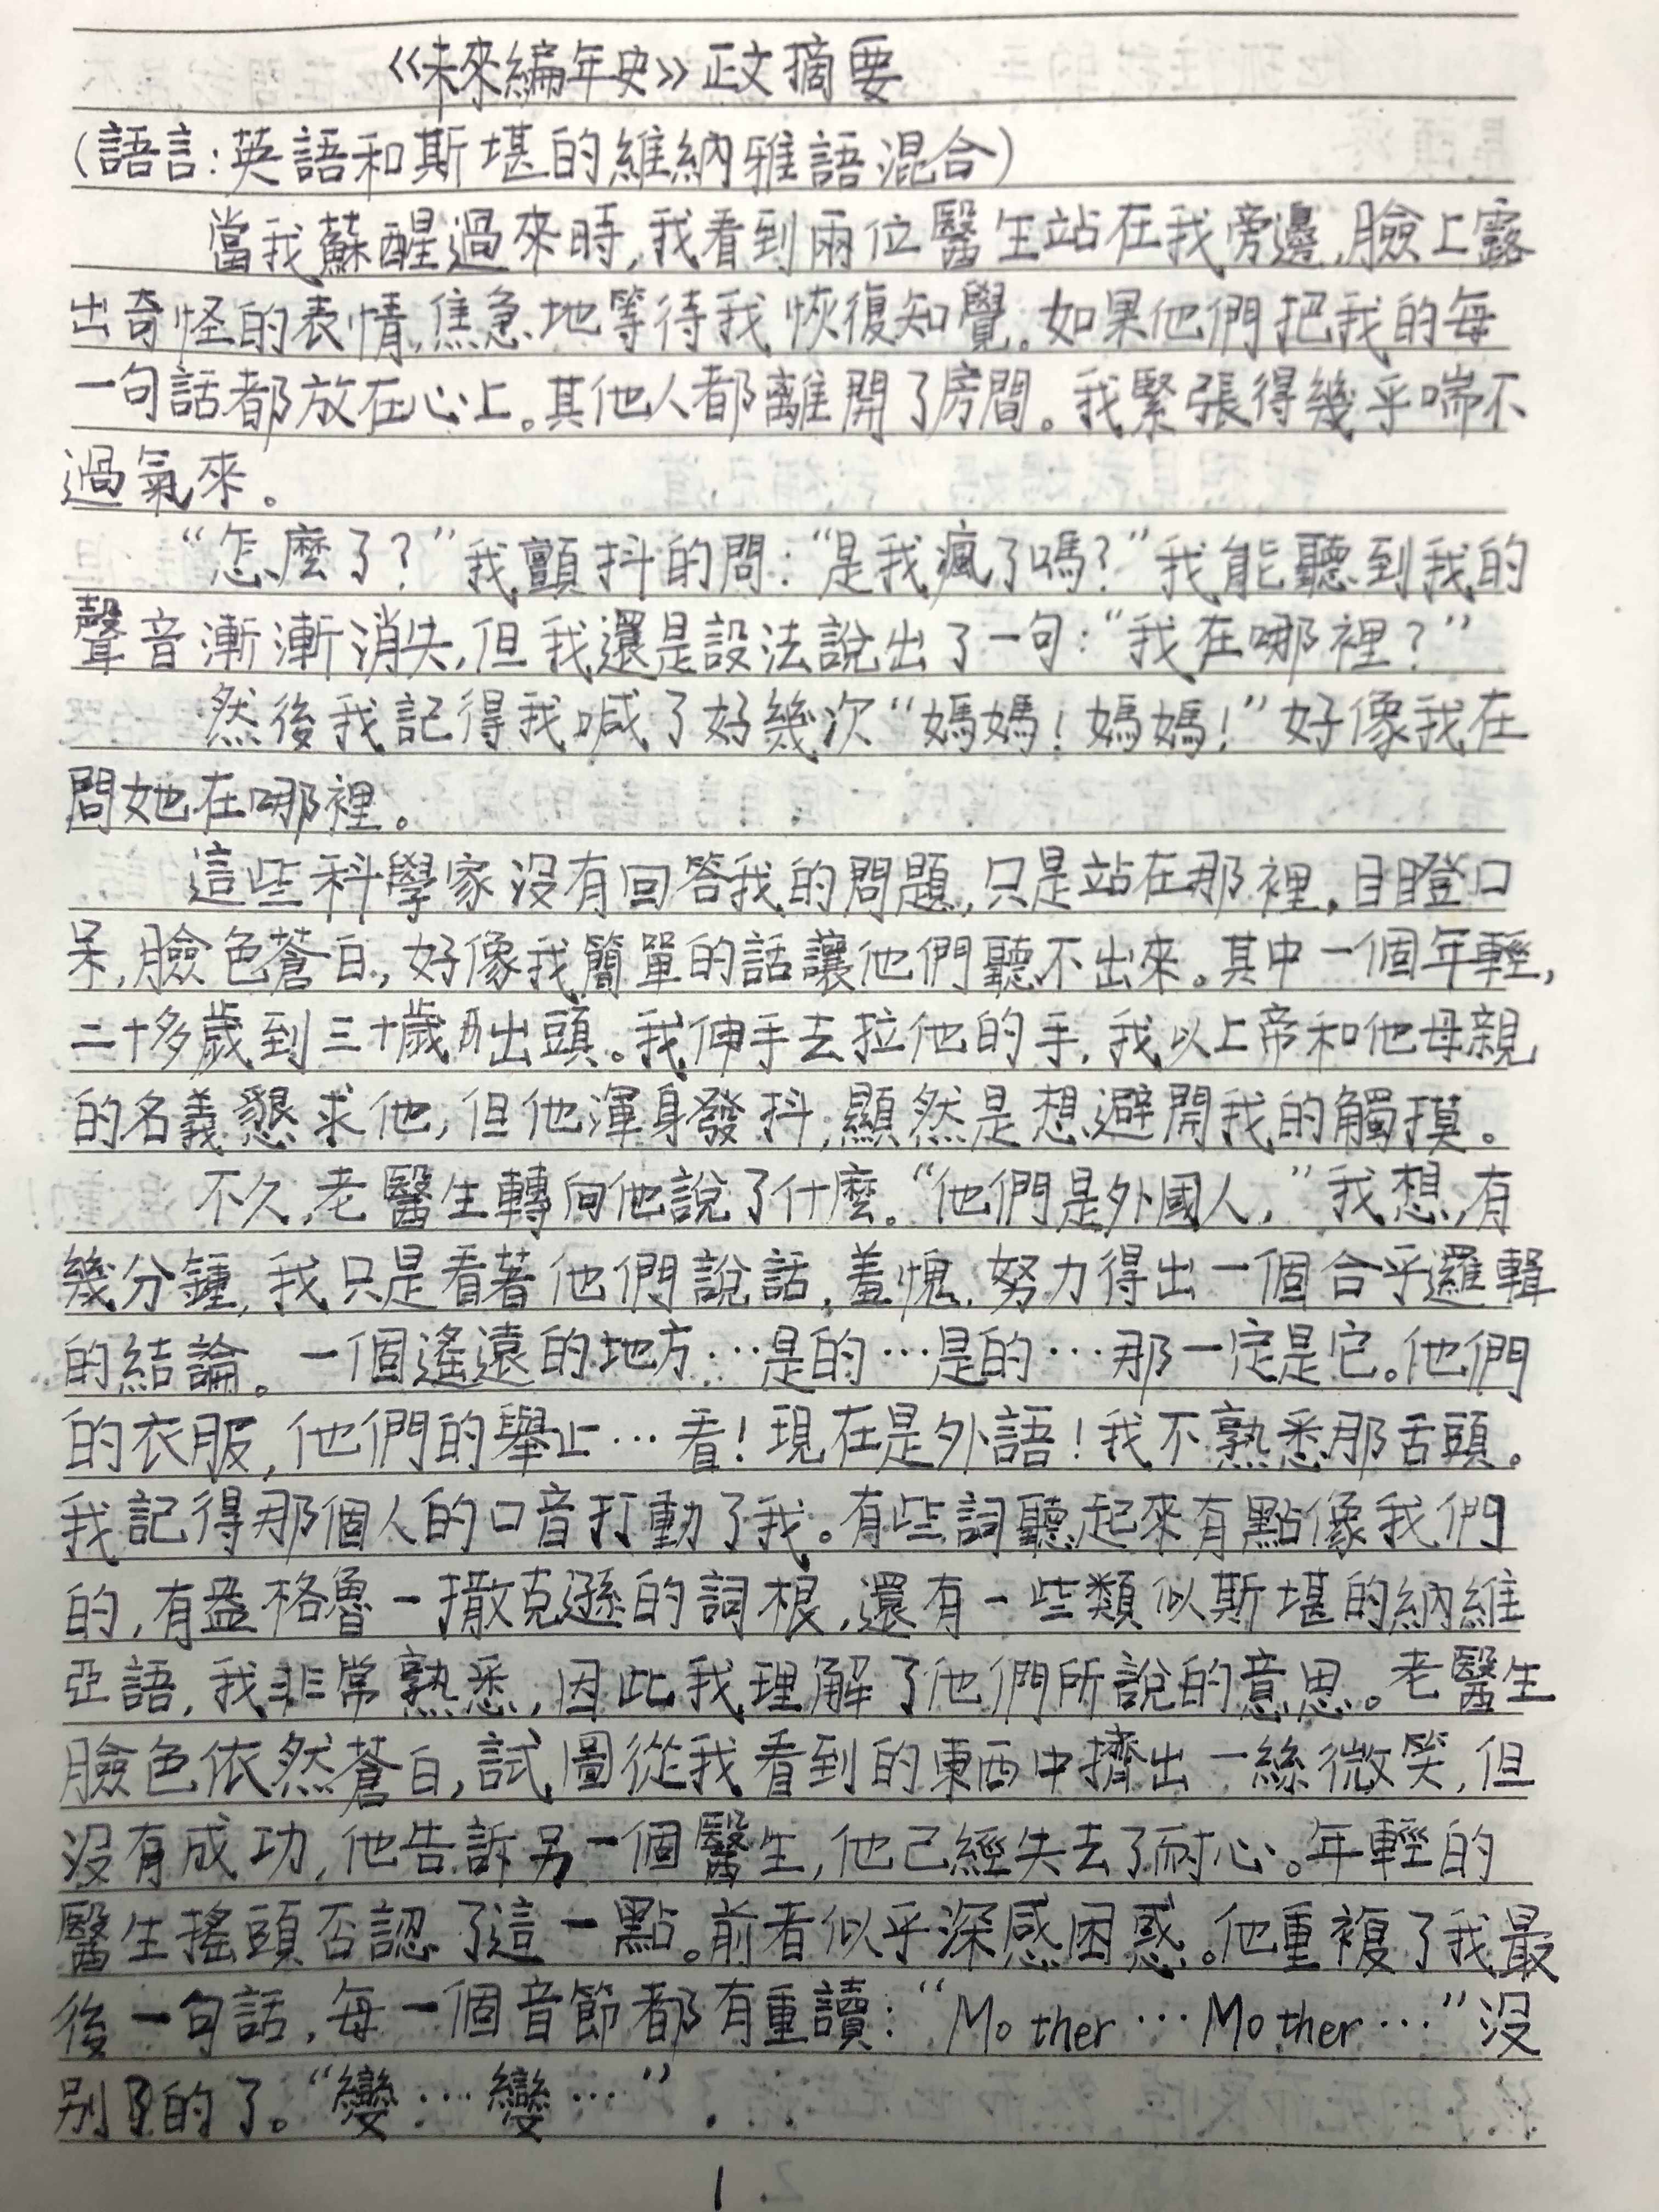 《未來編年史》正文摘要
(語言:英語和斯堪的維納雅語混合)
當我蘇醒過來時,我看到兩位醫生站在我旁邊,臉上露
出奇怪的表情,焦急地等待我恢復知覺。如果他們把我的每
一句話都放在心上。其他人都離開了房間。我緊張得幾乎喘不
過氣來。
“怎麼了?”我顫抖的問:“是我瘋了嗎?”我能聽到我的
聲音漸漸消失,但我還是設法說出了一句:“我在哪裡?”
然後我記得我喊了好幾次“媽媽!媽媽!”好像我在
問她在哪裡。
這些科學家沒有回答我的問題,只是站在那裡,目瞪口
呆,臉色蒼白,好像我簡單的話讓他們聽不出來。其中一個年輕,
二十多歲到三十歲出頭。我伸手去拉他的手,我以上帝和他母親
的名義懇求他,但他渾身發抖,顯然是想避開我的觸摸。
不久,老醫生轉向他說了什麼。“他們是外國人,”我想,有
幾分鐘,我只是看著他們說話,羞愧,努力得出一個合乎邏輯
的結論。一個遙遠的地方…是的…是的…那一定是它。他們
的衣服,他們的舉止…看!現在是外語!我不熟悉那舌頭。
我記得那個人的口音打動了我。有些詞聽起來有點像我們
的,有盎格魯-撒克遜的詞根,還有一些類似斯堪的納維
亞語,我非常熟悉,因此我理解了他們所說的意思。老醫生
臉色依然蒼白,試圖從我看到的東西中擠出一絲微笑,但
沒有成功,他告訴另一個醫生,他已經失去了耐心。年輕的
醫生搖頭否認了這一點。前者似乎深感困惑。他重複了我最
後一句話,每一個音節都有重讀:“Mother…Mother…”沒
別的了。“變…變…”
1